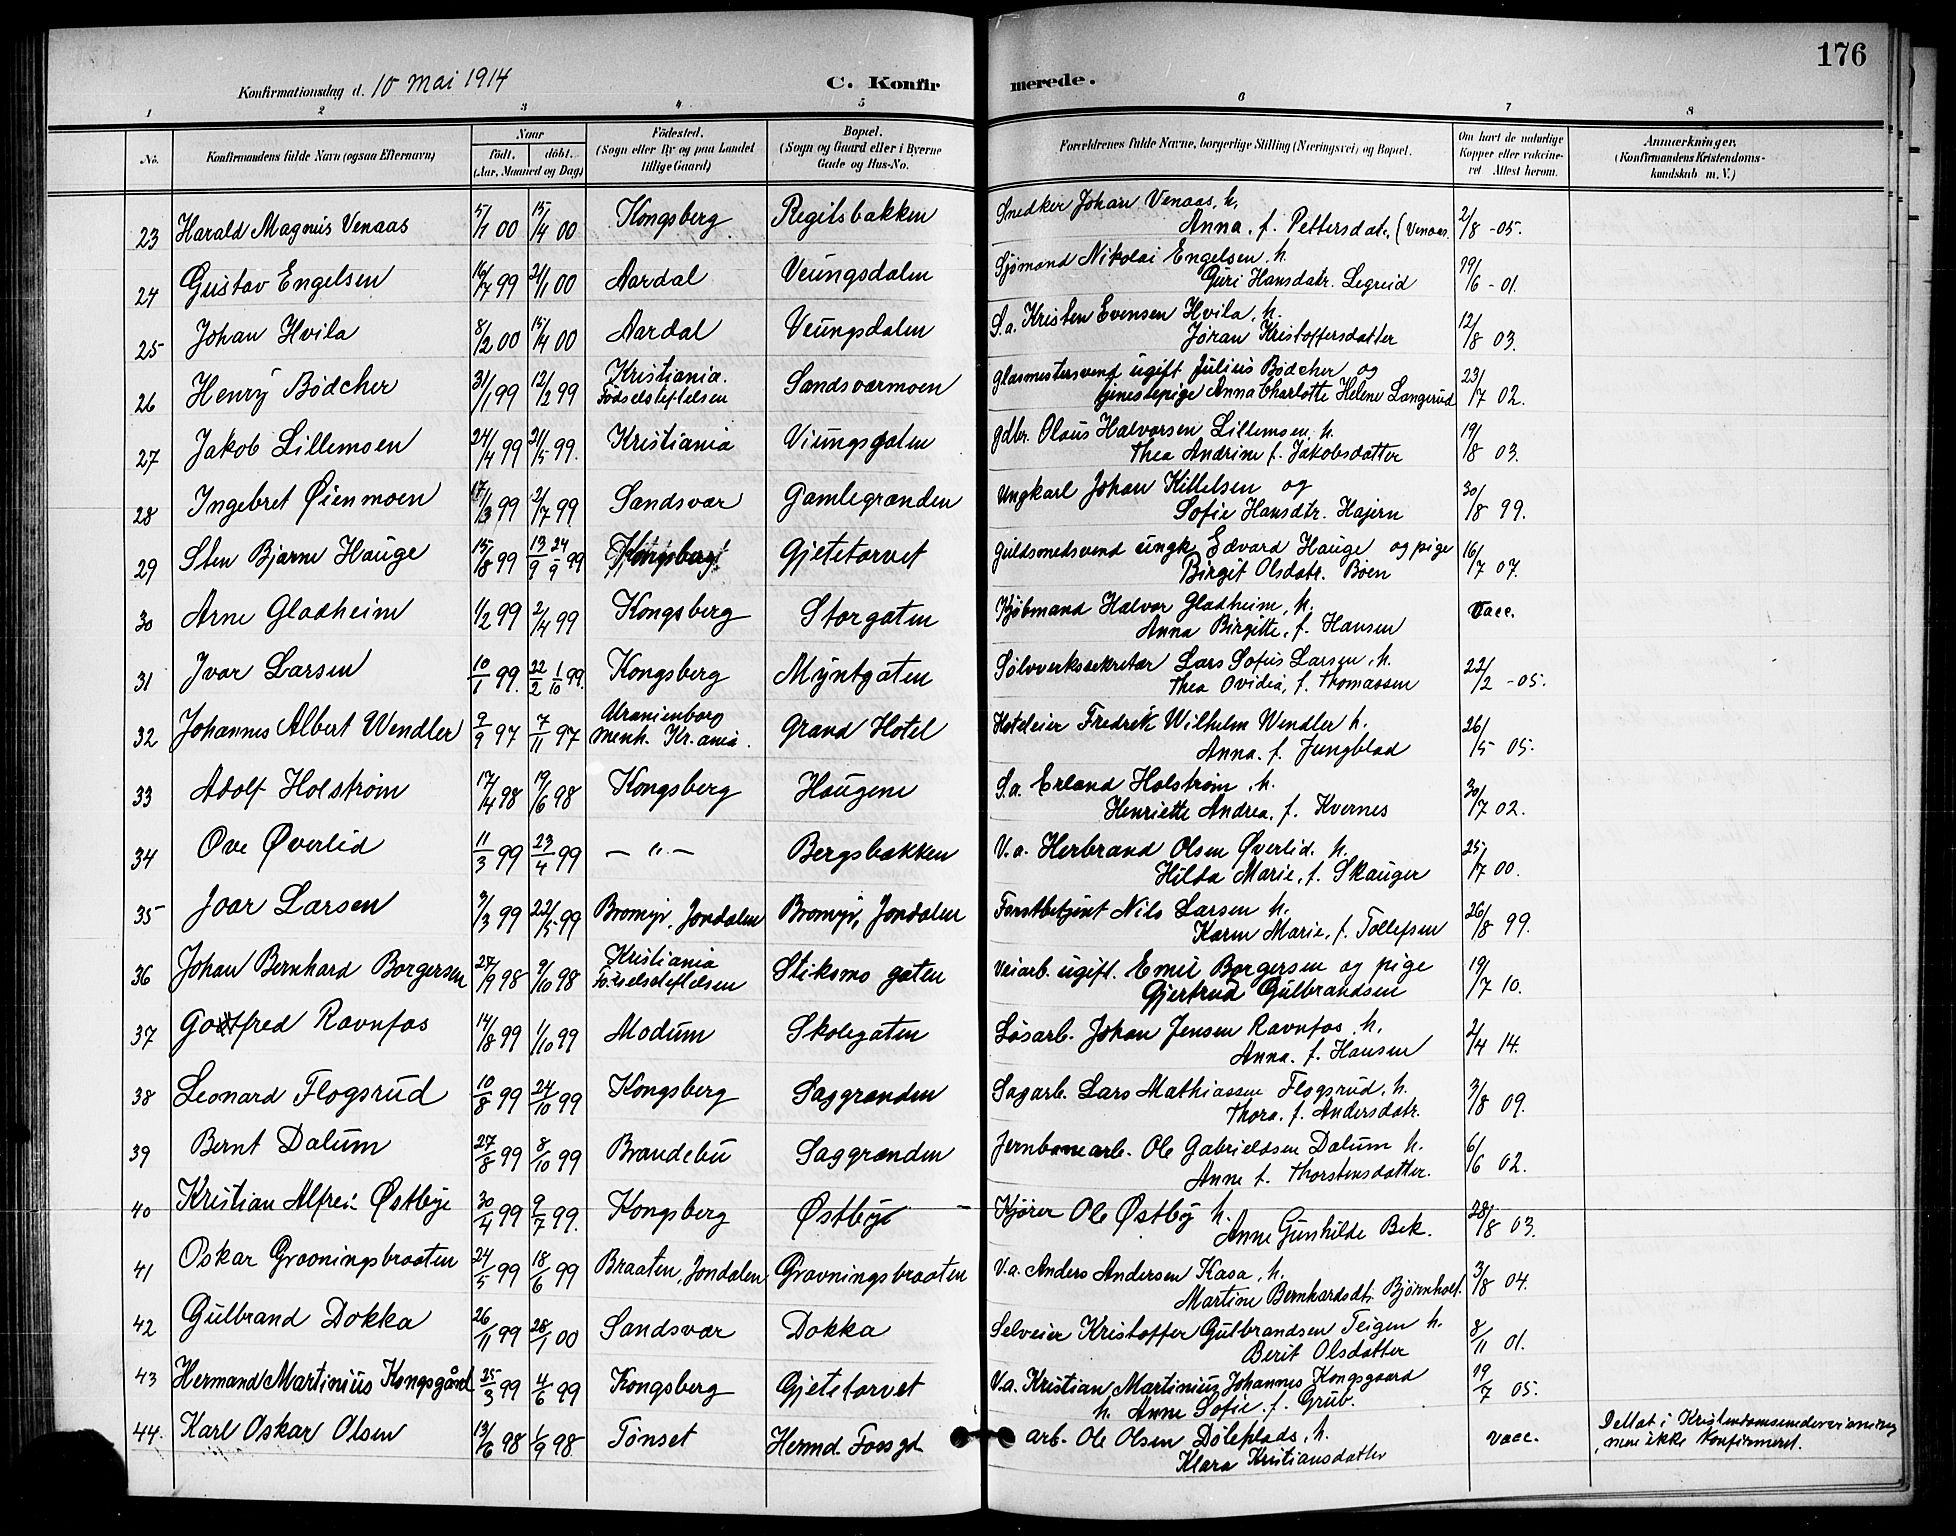 176
Konfirmationsdag d. 10 mai 1914
C. Konfir merede.
1 2 3 4 5 6 7 8
No.
Konfirmandens fulde Navn (ogsaa Efternavn)
Naar
født. døbt.
(Aar, Maaned og Dag)
Fødested.
(Sogn eller By og paa Landet
tillige Gaard)
Bopæl.
(Sogn og Gaard eller i Byerne
Gade og Hus-No.
Forældrenes fulde Navne, borgerlige Stilling (Næringsvei) og Bopæl.
Om havt de naturlige
Kopper eller vakcine-
ret Attest herom.
Anmærkninger.
(Konfirmandens Kristendoms-
kundskab m. V.)
23 Harald Magnus Venaas 5/1 00 15/4 00 Kongsberg Regitsbakken Snedker Johan Venaas, h.
Anna, f. Pettersdatr. (Venaas. 2/8 -05.
24 Gustav Engelsen 16/7 99 21/1 00 Aardal Veungsdalen Sjömand Nikolai Engelsen h.
Guri Hansdatr. Legreid 19/6 - 01.
25 Johan Hvila 8/2 00 15/4 00 Aardal Veungsdalen S.a. Kristen Evensen Hvila, h.
Jøran Kristoffersdatter 12/8 03.
26 Henry Bødcher 31/1 99 12/2 99 Kristiania.
Fødselsstiftelsen Sandsværmoen Glasmestersvend ugift Julius Bødcher og
tjenestepige Anna Charlotte Helene Langerud 23/7 02.
27 Jakob Lillemoen 24/4 99 21/5 99. Kristiania Viungsgaten gdbr. Olaus Halvorsen Lillemoen, h.
Thea Andrine f. Jakobsdatter 19/8 03.
28 Ingebret Øienmoen 99 2/7 99 Sandsvær Gamlegrænden Ungkarl Johan Kittelsen og
Sofie Hansdtr. Hajern 30/8 99.
29 Sten Bjarne Hauge 15/8 99 13/9 24/9 99 Kongsberg Gjetetorvet Guldsmedsvend ungk. Edvard Hauge og pige
Birgit Olsdatr. Boen 16/7 07.
30 Arne Gladheim 1/2 99 2/4 99 Kongsberg Storgaten Kjøbmand Halvor Gladheim, h.
Anna Birgitte, f. Hansen Vacc.
31 Ivar Larsen 10/1 99. 22/2 1/10 99. Kongsberg Myntgaten Sølvverkssekretær Lars Sofus Larsen, h.
Thea Ovidia, f. Thomassen 22/2 -05.
32 Johannes Albert Wendler 9/9 97 7/11 97 Uranienborg
menh. Kr.ania. Grand Hotel Hoteleier Fredrik Wilhelm Wendler h.
Anna. f. Jungblad 26/5 05.
33 Adolf Holstrøm 17/4 98 19/6 98 Kongsberg Haugene S.a. Erland Holstrøm, h.
Henriette Andrea, f. Kvernes 30/7 02.
34 Ove Øverlid 11/3 99 23/4 99 — " — Bergsbakken V.a. Herbrand Olsen Øverlid. h.
Hilda Marie, f. Skauger 25/7 00.
35 Joar Larsen 3/3 99 22/5 99 Bromyr, Jondalen Bromyr, Jondalen Forstbetjent Nils Larsen h.
Karen Marie, f. Tollefsen 26/8 99.
36 Johan Bernhard Borgersen 27/9 98 9/10 98 Kristiania
Fødselsstiftelsen Stiksmo gaten Veiarb. ugift. Emil Borgersen og pige
Gjertrud Gulbrandsen 19/7 10.
37 Gottfred Ravnfos 14/8 99 1/10 99 Modum Skolegaten Løsarb. Johan Jensen Ravnfos, h.
Anna. f. Hansen 2/4 14.
38 Leonard Flogsrud 10/8 99 24/10 99 Kongsberg Saggrænden Sagarb. Lars Mathiassen Flogsrud, h.
Thora. f. Andersdatr. 3/8 09.
39 Bernt Dalum 27/8 99 8/10 99 Brandebu Saggrænden Jernbanearb. Ole Gabrielsen Dalum h.
Anne f. Thorstensdatter. 6/6 02.
40 Kristian Alfred Østbye 30/4 99 9/7 99. Kongsberg Østbye Kjører Ole Østby h.
Anne Gunhilde Bek. 28/8 03.
41 Oskar Gravningsbraaten 24/5 99 18/6 99 Braaten, Jondalen Gravningsbraaten V.a. Anders Andersen Kasa, h.
Martine Bernhardsdtr. Bjørnholt. 3/8 04.
42 Gulbrand Dokka 26/11 99 28/1 00 Sandsvær Dokka Selveier Kristoffer Gulbrandsen Teigen h.
Berit Olsdatter 8/11 01.
43 Hermand Martinius Kongsgård 25/3 99 4/6 99 Kongsberg Gjetetorvet V.a. Kristian Martinius Johannes Kongsgaard
h. Anne Sofie. f. Grub. 19/7 05.
44. Karl Oskar Olsen 13/6 98 1/9 98 Tönset Hermd. Fossgt. arb. Ole Olsen Döleplads, h.
Klara Kristiansdatter vacc. Deltat i Kristendomsundervisning,
men ikke konfirmeret.